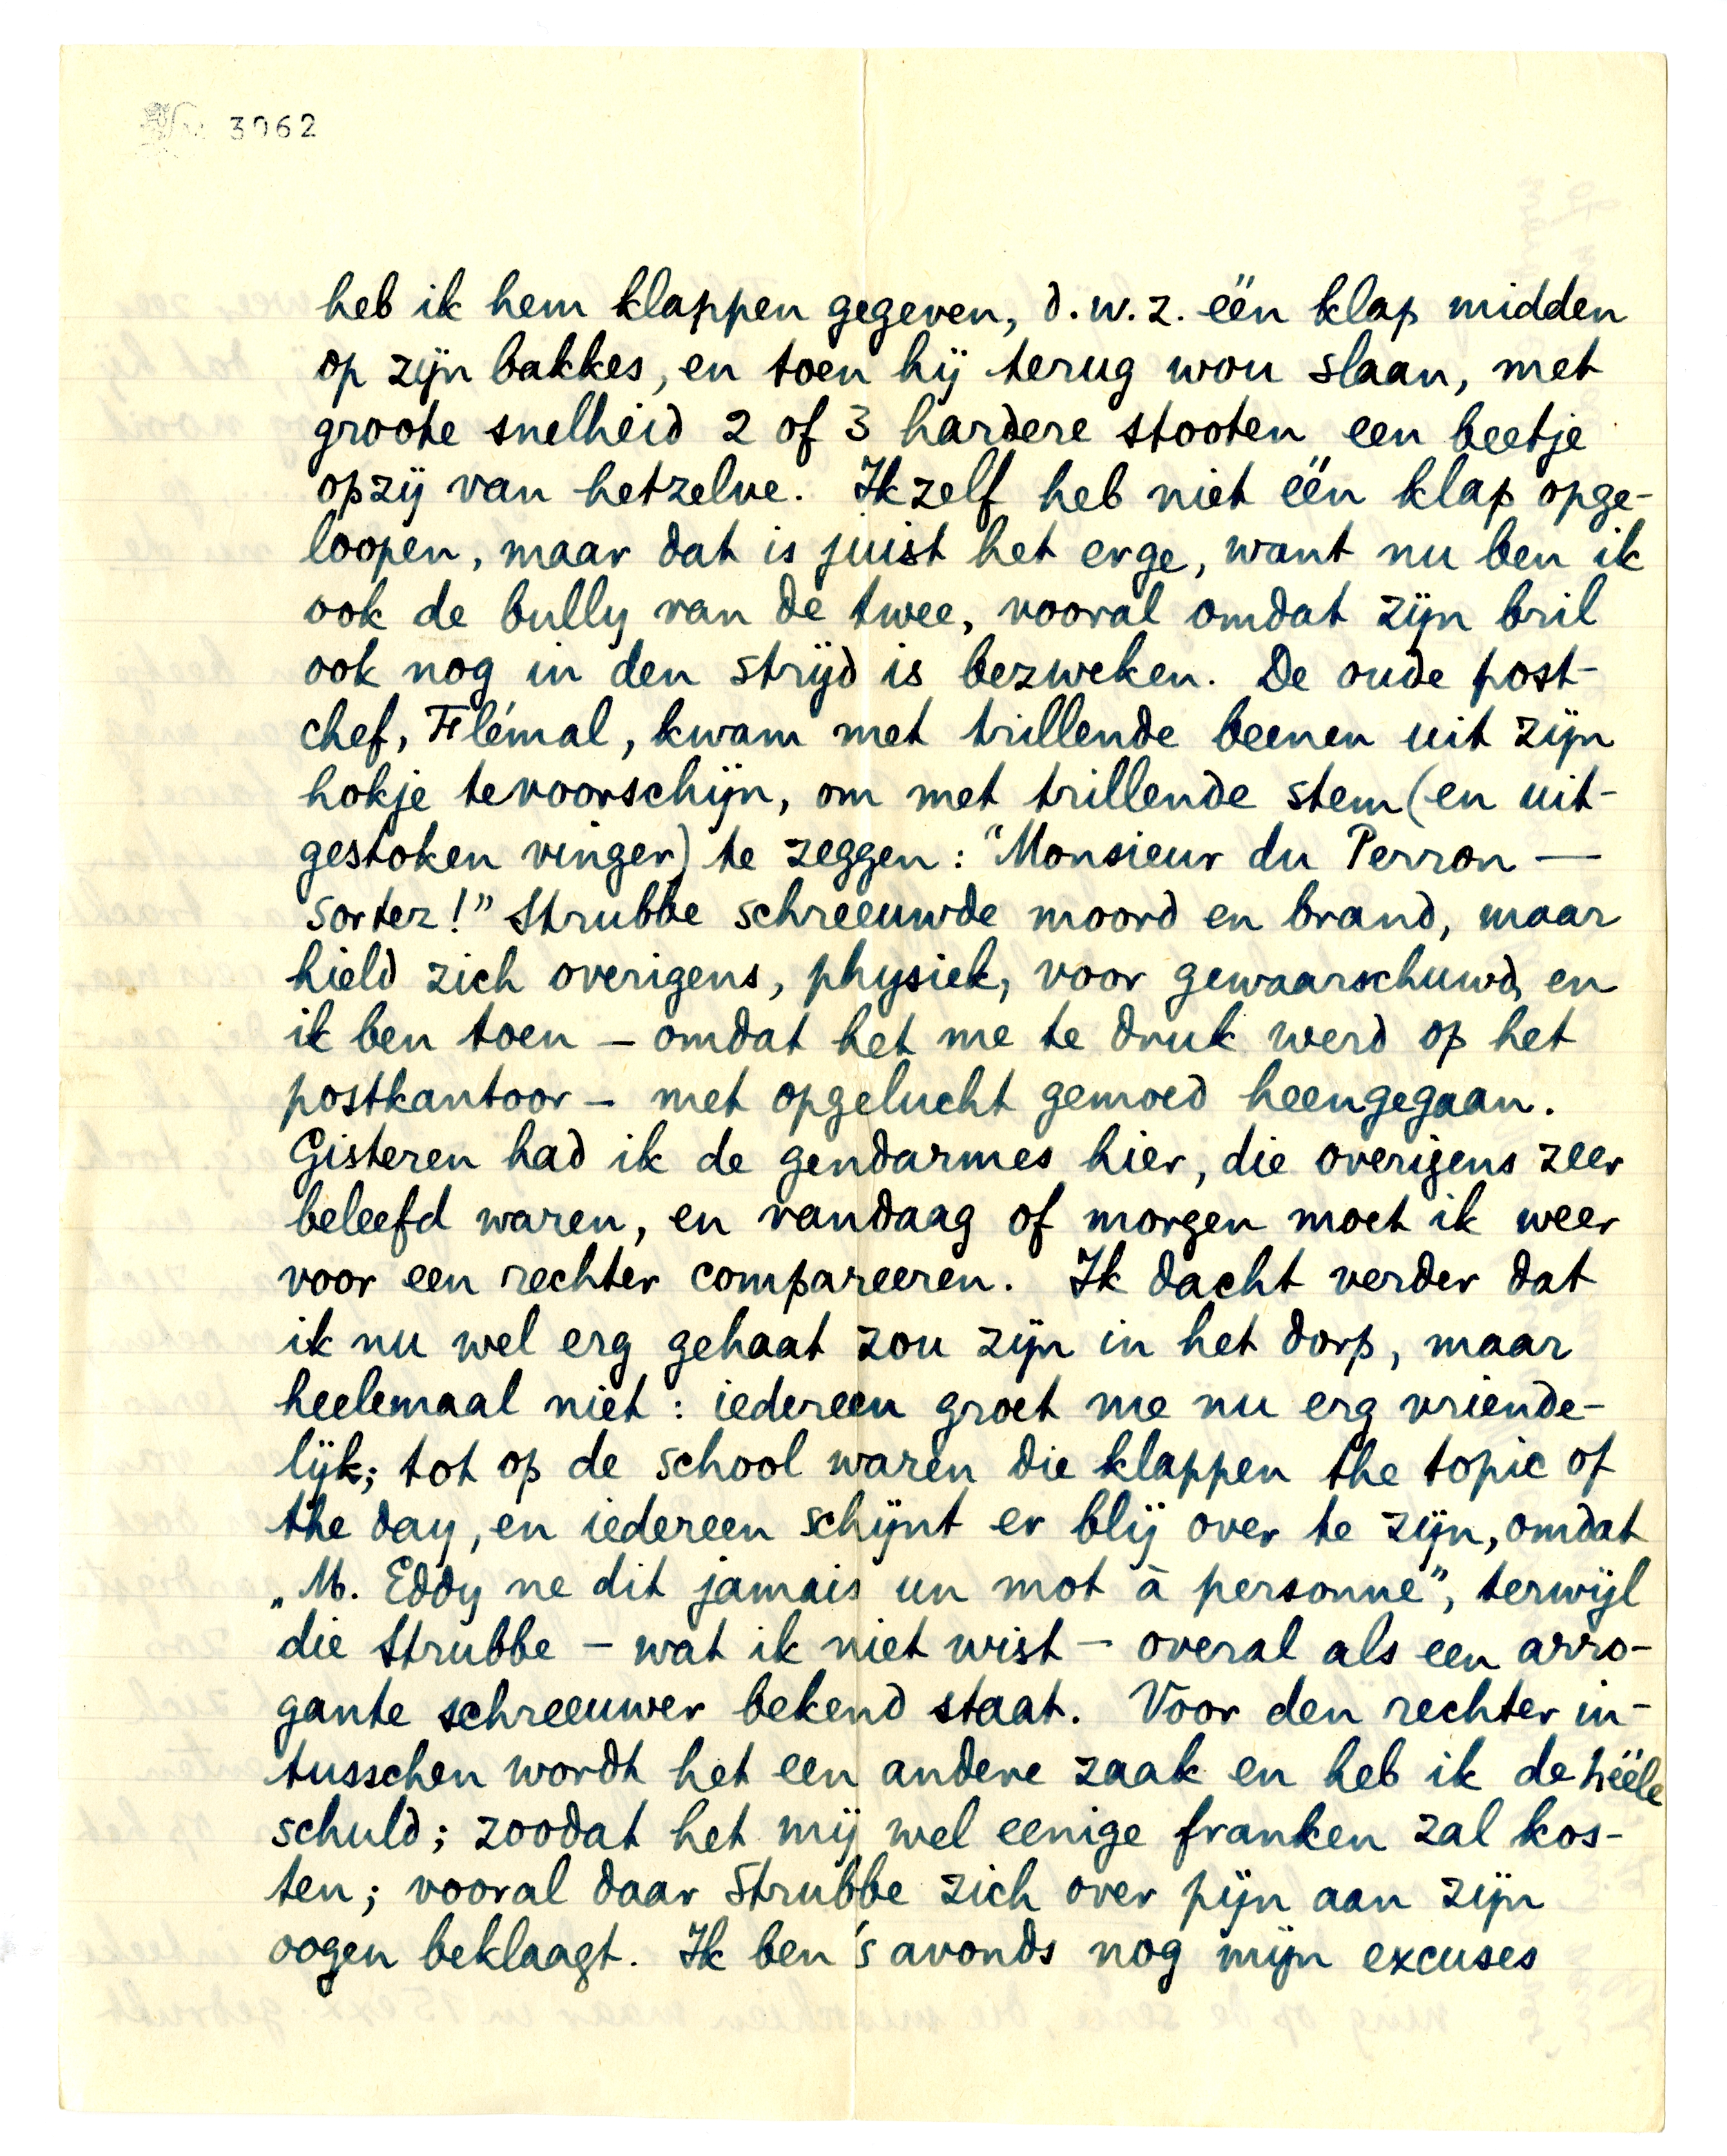 3062
heb ik hem klappen gegeven, d.w.z. één klap midden
op zijn bakkes, en toen hij terug wou slaan, met
groote snelheid 2 of 3 hardere stooten een beetje
opzij van hetzelve. Ikzelf heb niet één klap opge-
loopen, maar dat is juist het erge, want nu ben ik
ook de bully van de twee, vooral omdat zijn bril
ook nog in den strijd is bezweken. De oude post-
chef, Flémal, kwam met trillende beenen uit zijn
hokje tevoorschijn, om met trillende stem (en uit-
gestoken vinger) te zeggen: "Monsieur du Perron —
sortez!" Strubbe schreeuwde moord en brand, maar
hield zich overigens, physiek, voor gewaarschuwd, en
ik ben toen – omdat het me te druk werd op het
postkantoor – met opgelucht gemoed heengegaan.
Gisteren had ik de gendarmes hier, die overigens zeer
beleefd waren, en vandaag of morgen moet ik weer
voor een rechter compareeren. Ik dacht verder dat
ik nu wel erg gehaat zou zijn in het dorp, maar
heelemaal niet: iedereen groet me nu erg vriende-
lijk; tot op de school waren die klappen the topic of
the day, en iedereen schijnt er blij over te zijn, omdat
„M. Eddy ne dit jamais un mot à personne", terwijl
die Strubbe – wat ik niet wist – overal als een arro-
gante schreeuwer bekend staat. Voor den rechter in-
tusschen wordt het een andere zaak en heb ik de hééle
schuld; zoodat het mij wel eenige franken zal kos-
ten; vooral daar Strubbe zich over pijn aan zijn
oogen beklaagt. Ik ben 's avonds nog mijn excuses